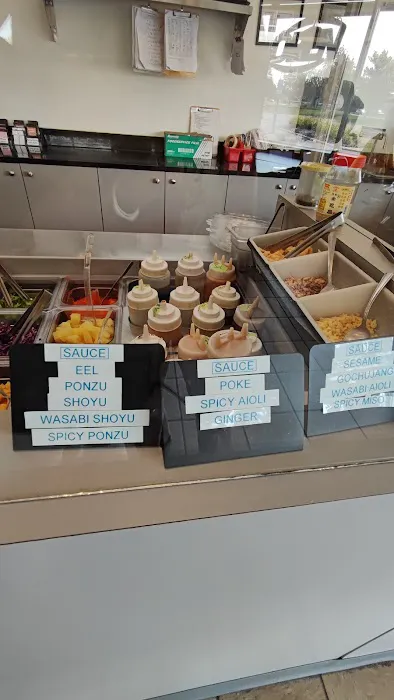 SAUCE
EEL
PONZU
SHOYU
WASABI SHOYU
SPICY PONZU
SAUCE
POKE
SPICY AIOLI
GINGER
SAUCE
SESAME
GOCHUJANG
WASABI AIOLI
SPICY MISO